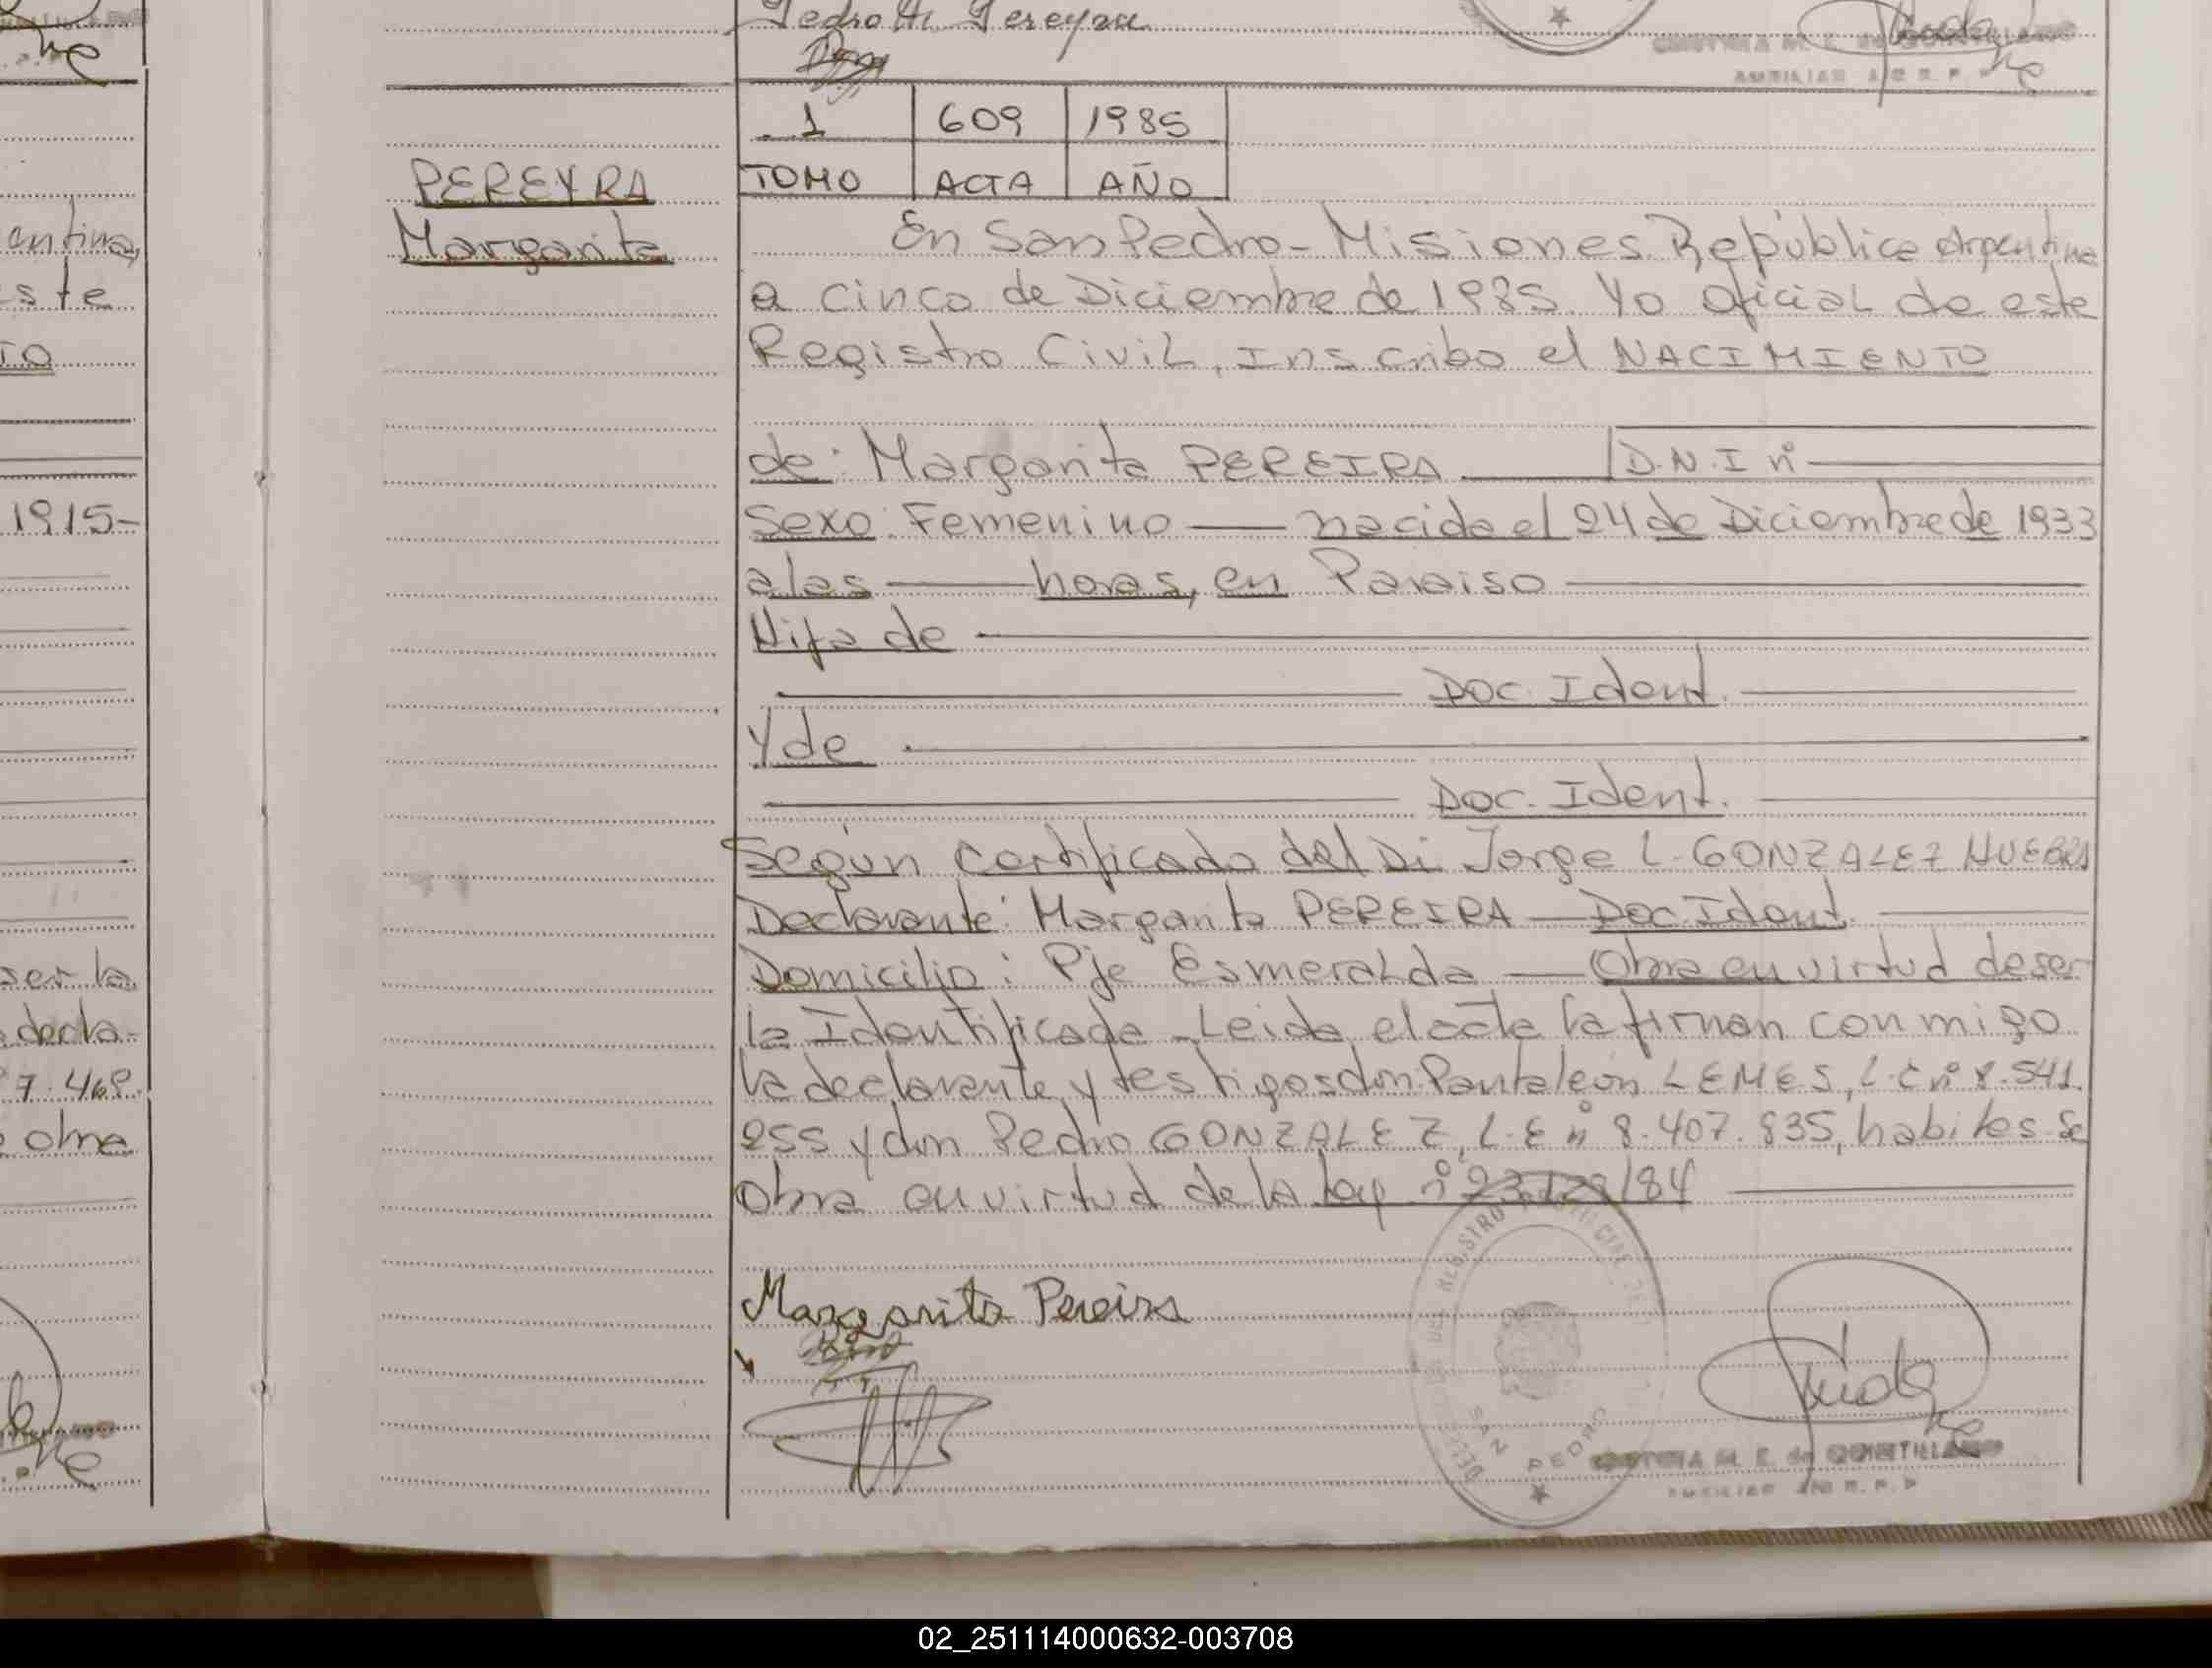 Pedro A. Pereyra
1 609 1985
TOMO ACTA AÑO
PEREYRA
Margarita
En San Pedro - Misiones República Argentina
a cinco de Diciembre de 1985. Yo Oficial de este
Registro Civil, Inscribo el NACIMIENTO
de: Margarita PEREIRA D.N.I nº
Sexo: Femenino nacida el 24 de Diciembre de 1933
a las horas, en Paraiso
Hija de
Doc. Ident.
y de
Doc. Ident.
Según Certificado del Dr Jorge L. GONZALEZ HUEBRA
Declarante: Margarita PEREIRA Doc. Ident.
Domicilio: Pje Esmeralda Obra en virtud de ser
la Identificada - Leida el acta la firman con migo
la declarante y testigos don Pantaleón LEMES, L.E nº 8.541.
255 y don Pedro GONZALEZ, L.E nº 8.407.835, habiles - Se
Obra en virtud de la Ley nº /84
Margarita Pereira
DEL REGISTRO
SAN PEDRO
M. E. de QUINTILLANO
AUXILIAR
entina,
ste
TO
1915-
ser la
decla-
7.469.
obra
02_251114000632-003708